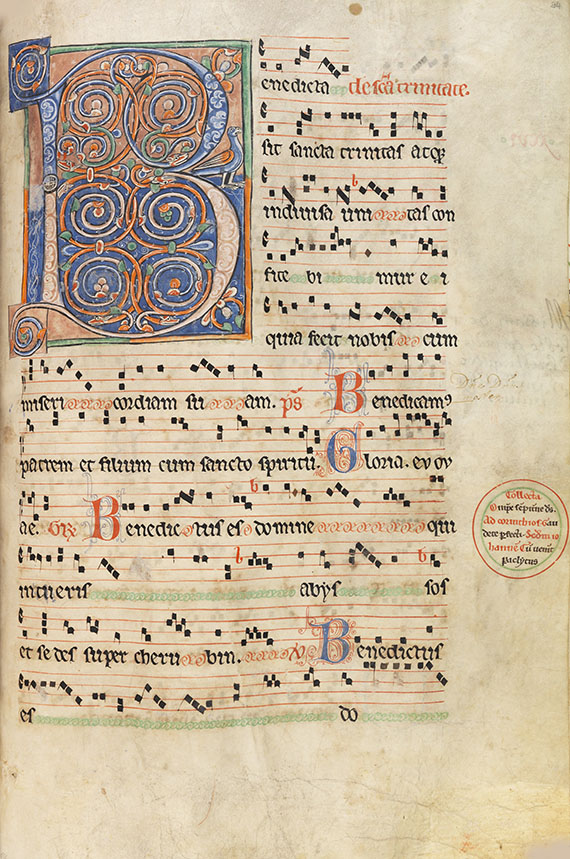 Benedicta de sca trinitate.
sit sancta trinitas atq
indivisa uni tas con
fite bi mur e i
quia fecit nobis cum
miseri cordiam su am. ps Benedicamus
patrem et filium cum sancto spiritu. Gloria. eu ou
ae. Benedic tus es domine qui
intueris abys sos
et se des super cheru bin. Benedictus
es do
Collecta
Ad corinthios Gau
dete
hanne Cu uenit
paclytus